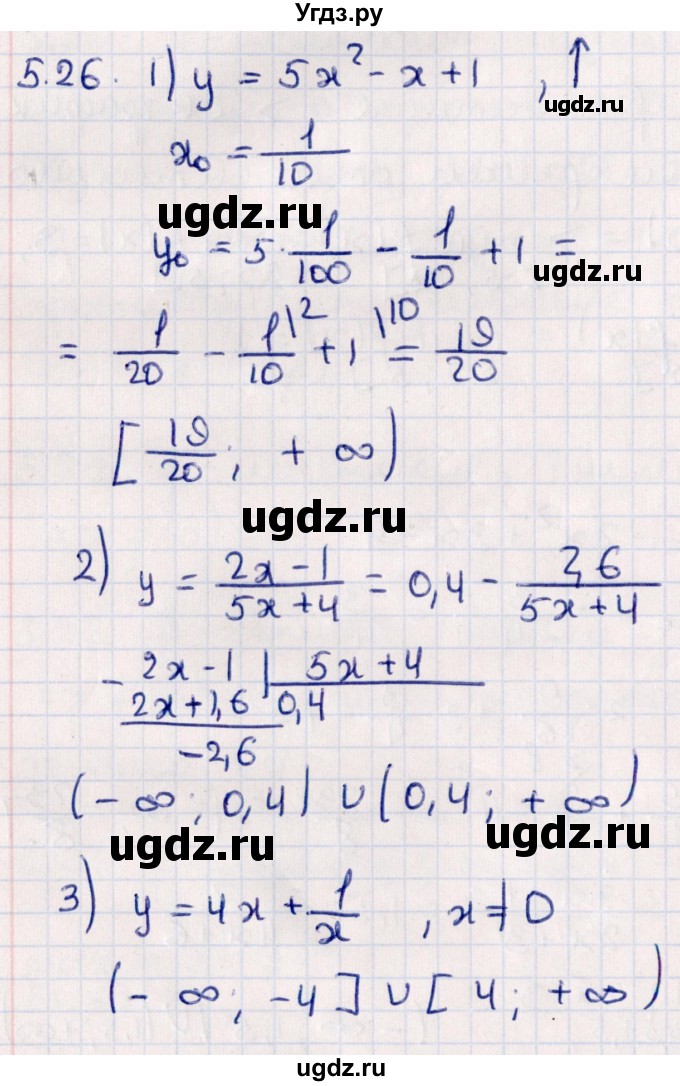 Угдз.ру
5.26. 1) y = 5x² - x + 1 , ↑
ugdz.ru
x₀ = 1/10
ugdz.ru
y₀ = 5 · 1/100 - 1/10 + 1 =
ugdz.ru
= 1/20 - 1/10 |2 + 1 |10 = 19/20
[19/20; + ∞)
ugdz.ru
2) y = (2x - 1)/(5x + 4) = 0,4 - 2,6/(5x + 4)
- 2x - 1 | 5x + 4
2x + 1,6 | 0,4
-2,6
(- ∞; 0,4) ∪ (0,4; + ∞)
ugdz.ru ugdz.ru
3) y = 4x + 1/x , x ≠ 0
(- ∞; -4] ∪ [4; +∞)
ugdz.ru